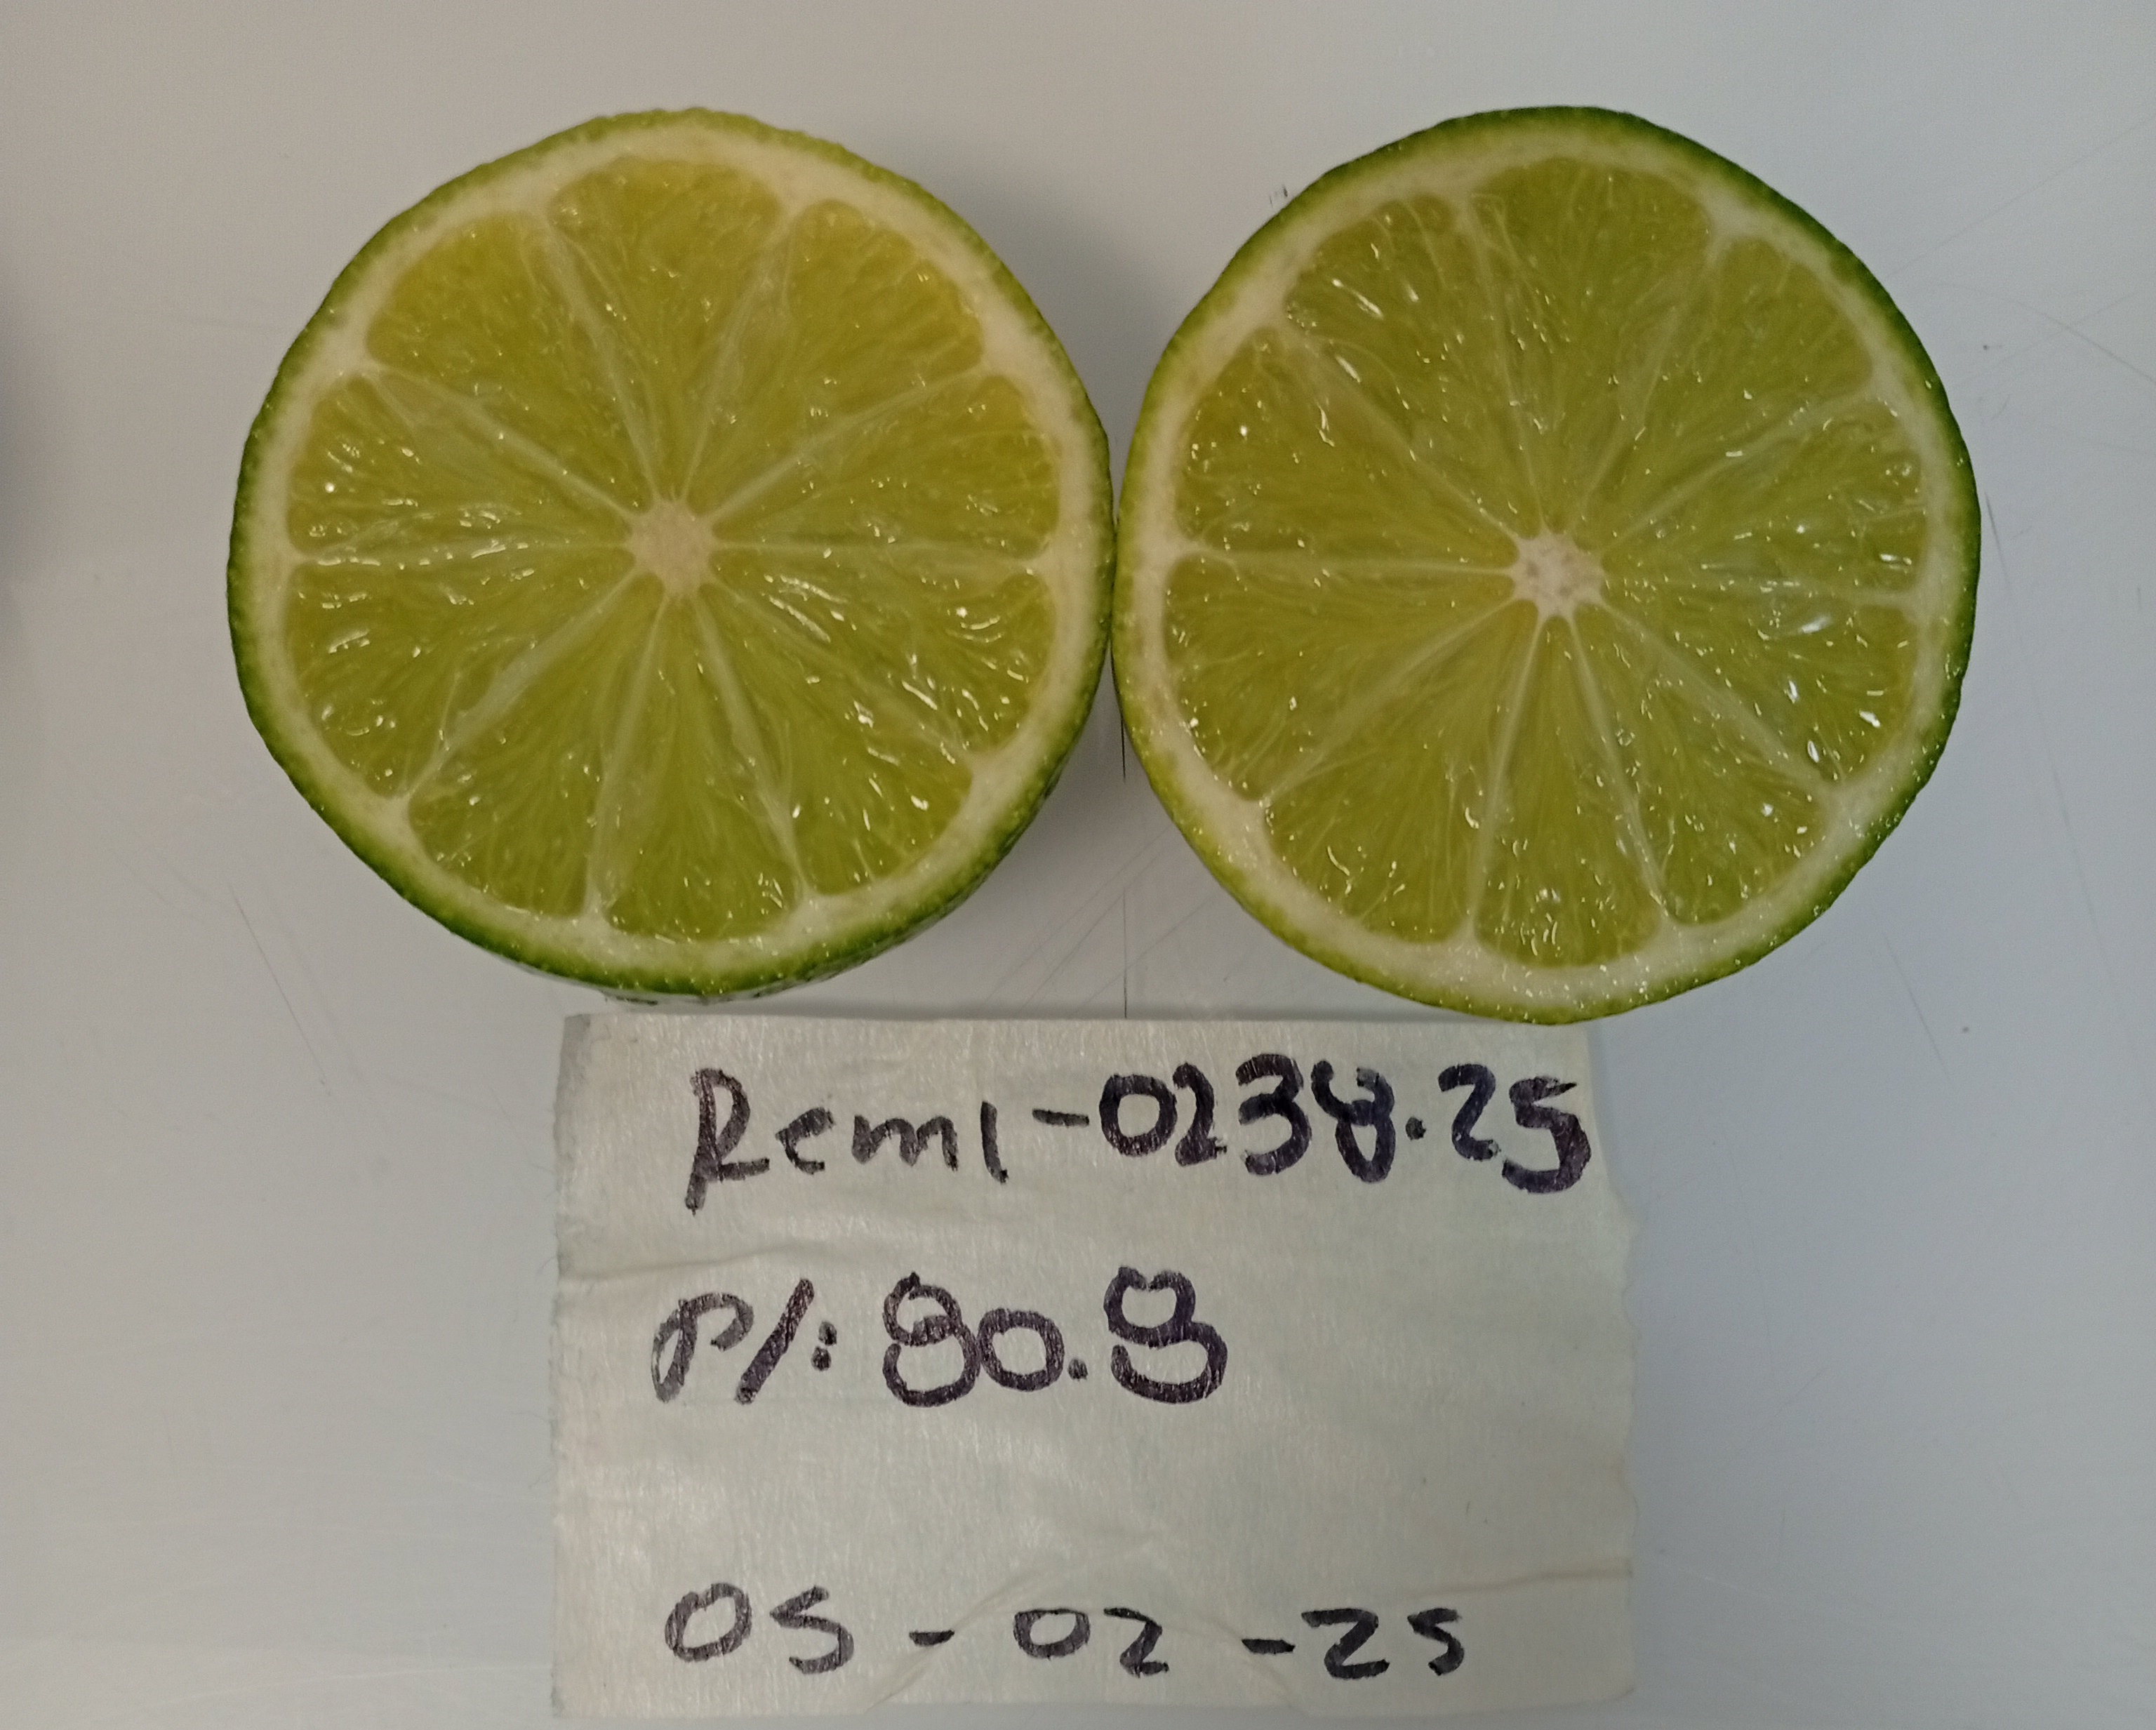 Rem1-0238.25
P/: 80.8
05-02-25